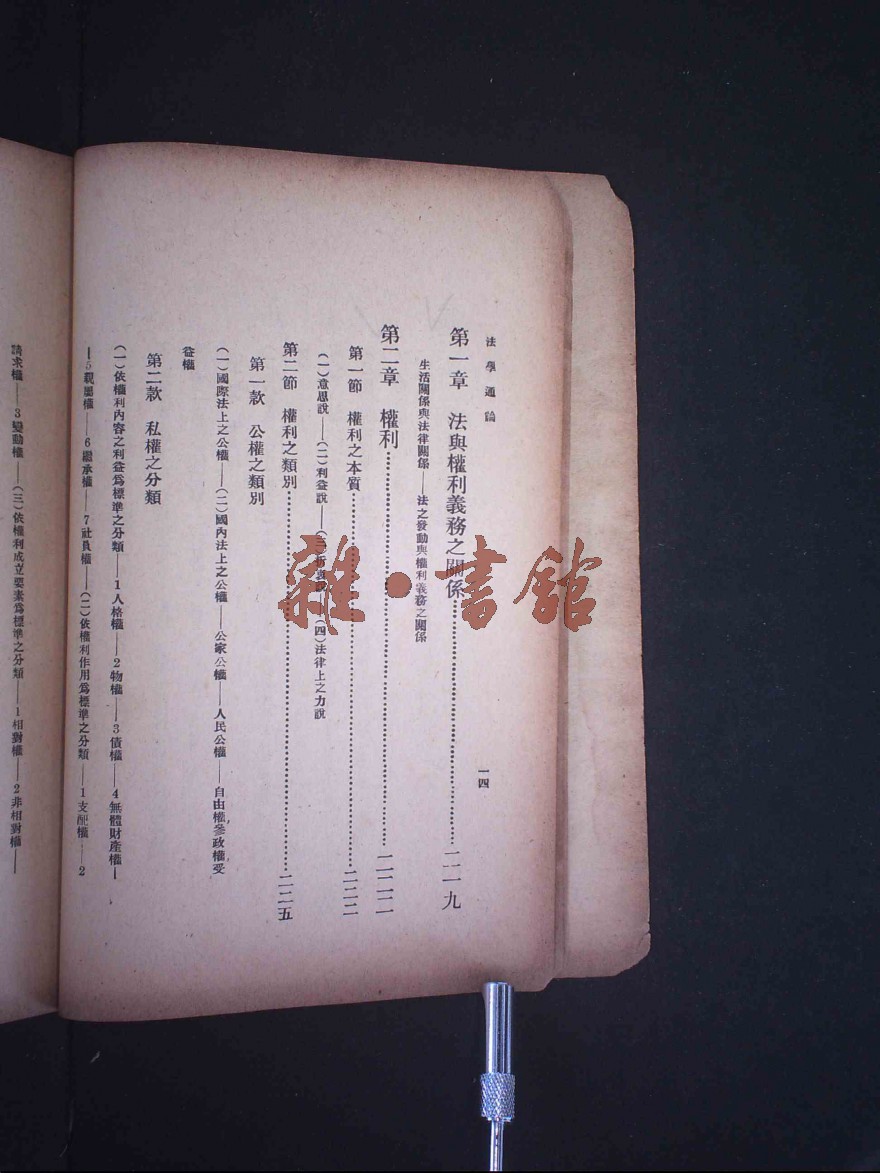 法學通論
一四
第一章 法與權利義務之關係……二一九
生活關係與法律關係——法之發動與權利義務之關係
第二章 權利……二二二
第一節 權利之本質……二二二
（一）意思說——（二）利益說——（三）折衷說——（四）法律上之力說
第二節 權利之類別……二二五
第一款 公權之類別
（一）國際法上之公權——（二）國內法上之公權——公家公權——人民公權——自由權參政權受
益權
第二款 私權之分類
（一）依權利內容之利益爲標準之分類——1人格權——2物權——3債權——4無體財產權—
—5親屬權——6繼承權——7社員權——（二）依權利作用爲標準之分類——1支配權——2
請求權——3變動權——（三）依權利成立要素爲標準之分類——1相對權——2非相對權——
雜·書館